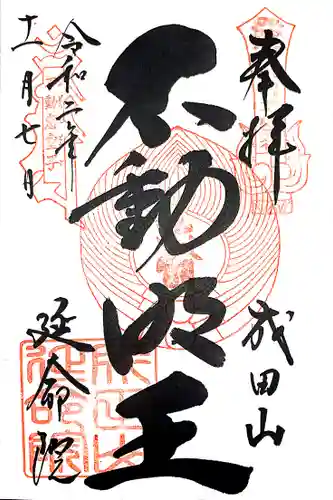 奉拝
成田山
不動明王
令和二年
十一月七日
延命院